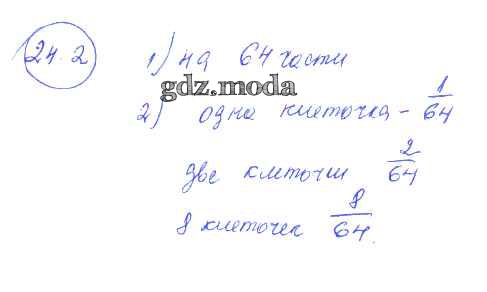 24.2
1) на 64 части
gdz.moda
2) одна клеточка – 1/64
две клеточки 2/64
8 клеточек 8/64.